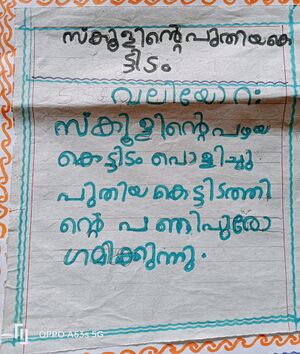 സ്കൂളിന്റെ പുതിയകെ
ട്ടിടം
വലിയോറ:
സ്കൂളിന്റെ പഴയ
കെട്ടിടം പൊളിച്ചു
പുതിയ കെട്ടിടത്തി
ന്റെ പണിപുരോ
ഗമിക്കുന്നു.
OPPO A53s 5G